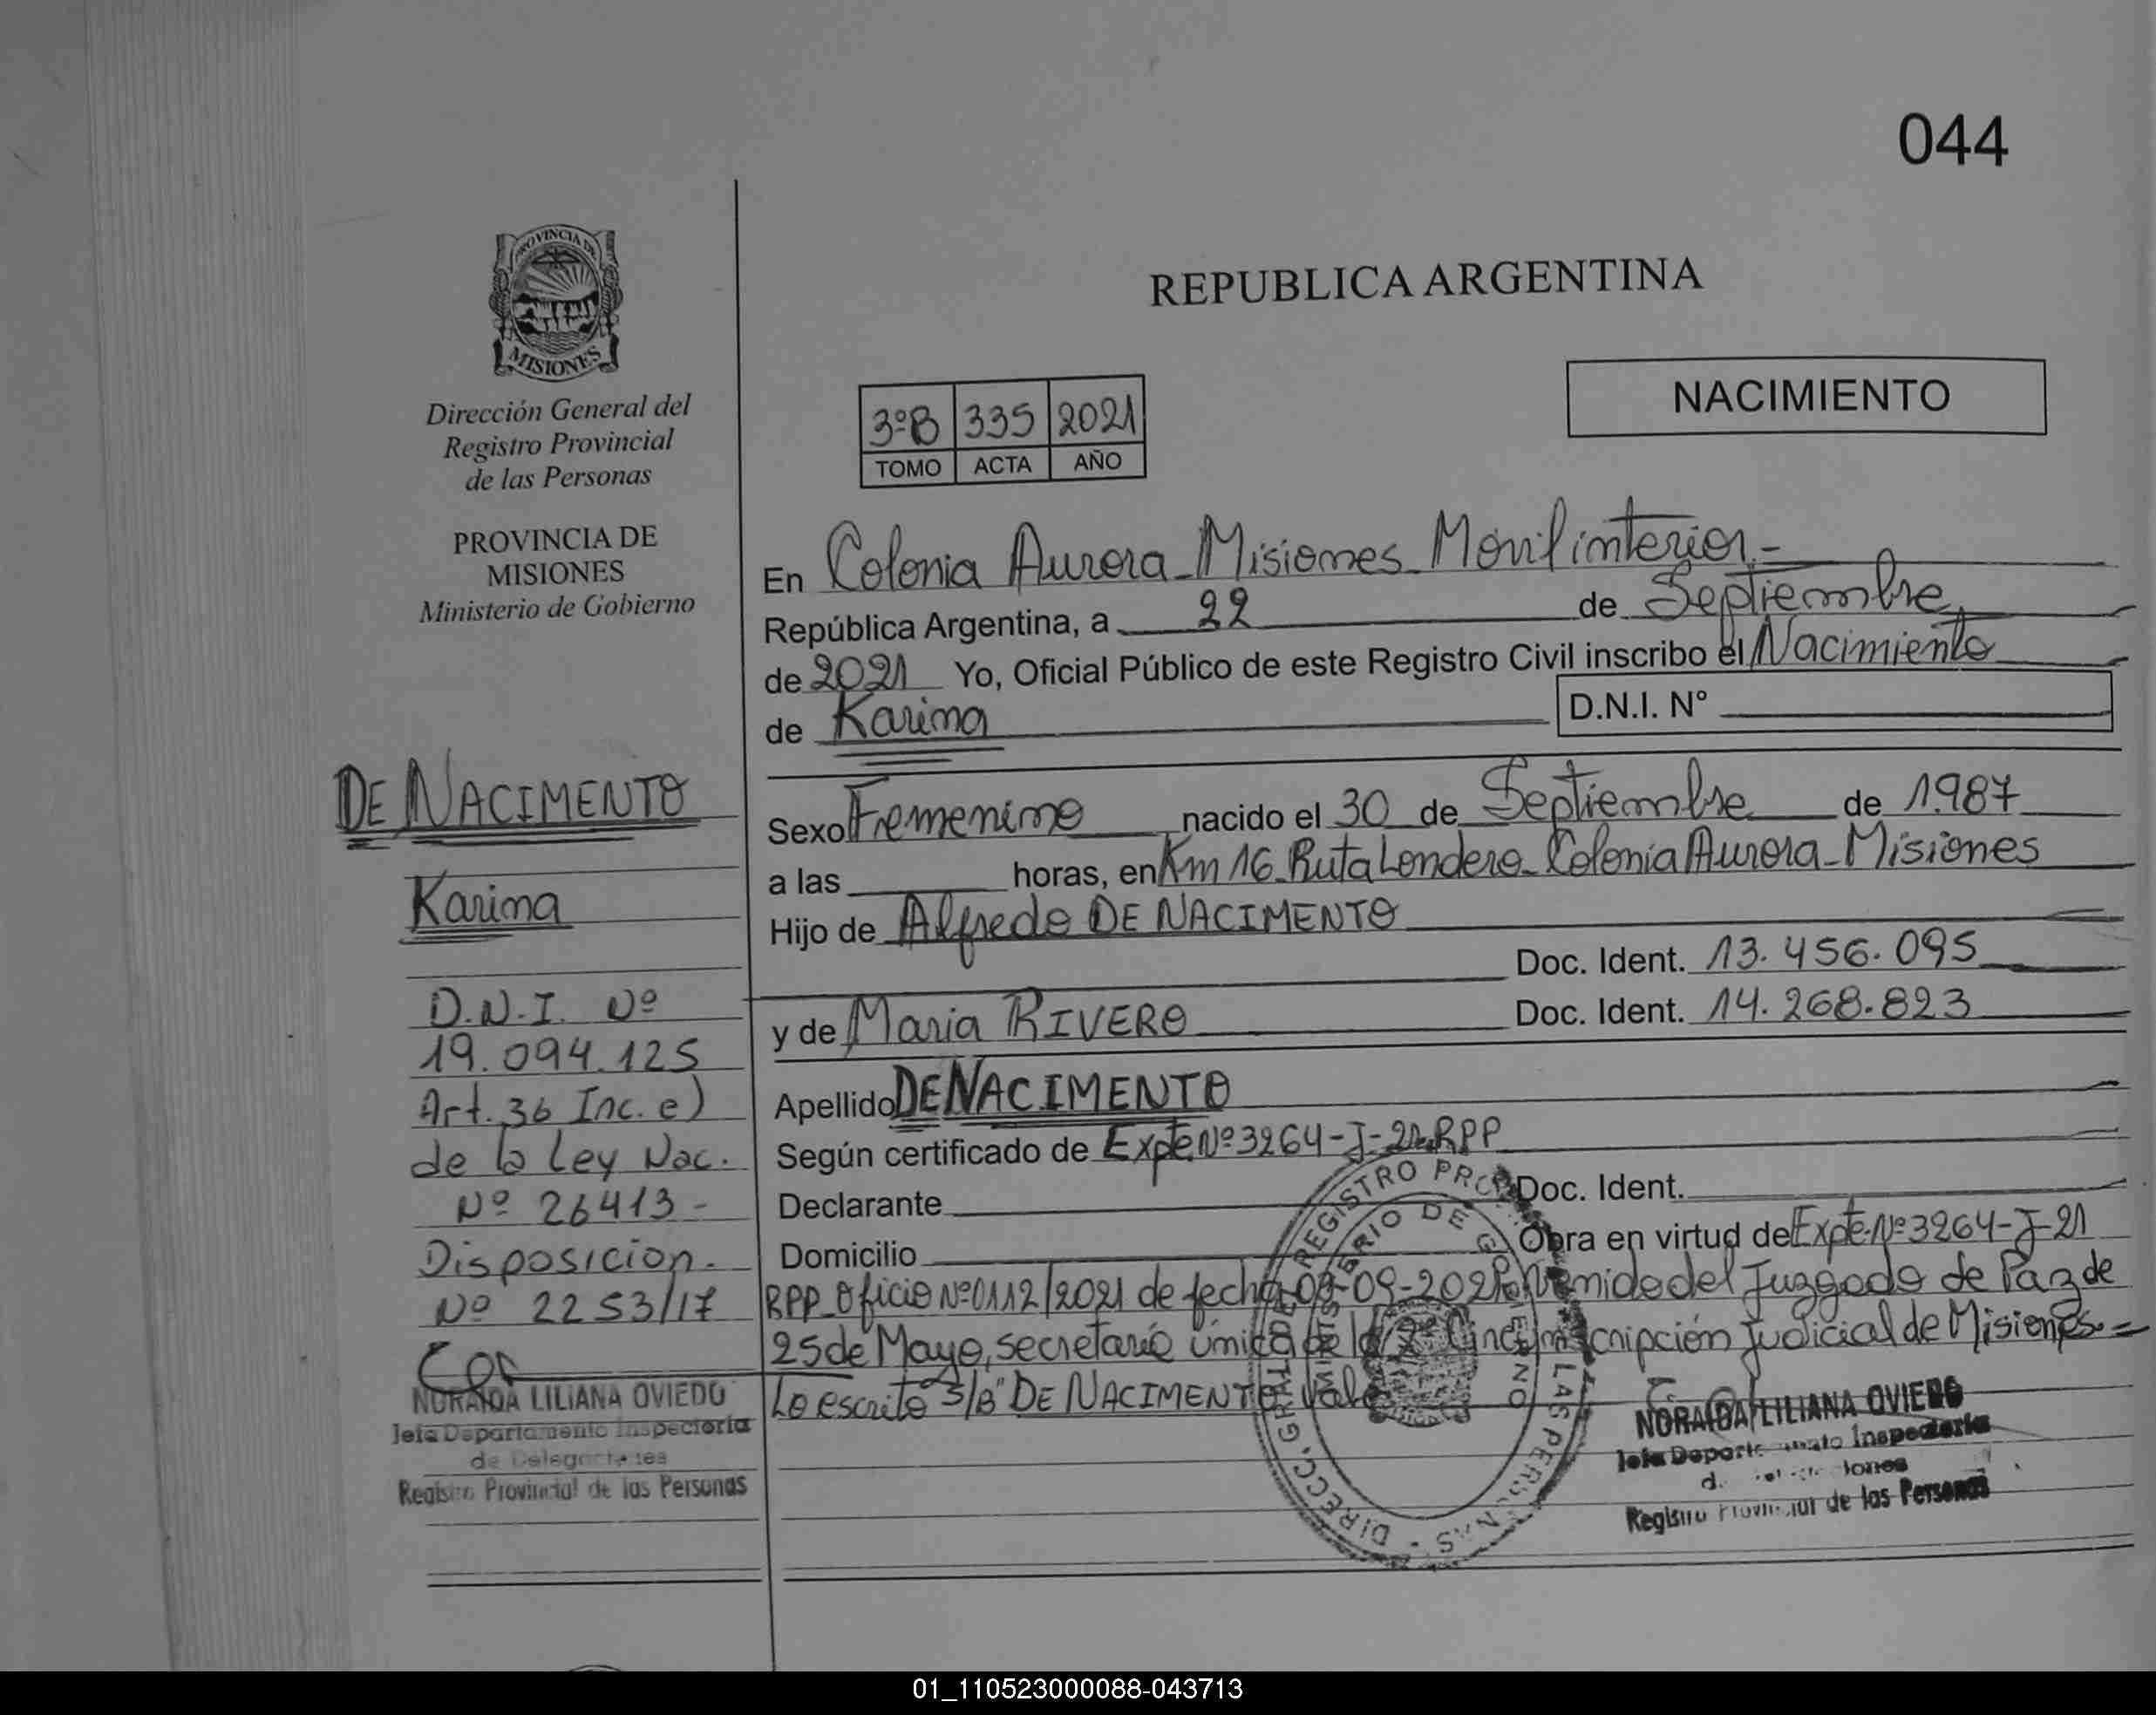 044
PROVINCIA DE
MISIONES
Dirección General del
Registro Provincial
de las Personas
PROVINCIA DE
MISIONES
Ministerio de Gobierno
DE NACIMENTO
Karina
D.N.I. Nº
19.094.125
Art. 36 Inc. e)
de la Ley Nac.
Nº 26413-
Disposicion.
Nº 2253/17
NORAIDA LILIANA OVIEDO
Jefa Departamento Inspectoria
de Delegaciones
Registro Provincial de las Personas
REPUBLICA ARGENTINA
3ºB 335 2021
TOMO ACTA AÑO
NACIMIENTO
En Colonia Aurora_Misiones_Movil interior.-
República Argentina, a 22 de Septiembre
de 2021 Yo, Oficial Público de este Registro Civil inscribo el Nacimiento
de Karina D.N.I. N°
Sexo Femenino nacido el 30 de Septiembre de 1.987
a las horas, en Km 16_Ruta Londero_Colonia Aurora_Misiones
Hijo de Alfredo DE NACIMENTO
Doc. Ident. 13.456.095
y de Maria RIVERO Doc. Ident. 14.268.823
Apellido DE NACIMENTO
Según certificado de Expte.Nº3264-J-21.RPP
Declarante Doc. Ident.
Domicilio Obra en virtud de Expte.Nº3264-J-21
RPP_Oficio Nº0112/2021 de fecha 09-09-2021 del Juzgado de Paz de
25 de Mayo, secretaria única de la 2º Circunscripción Judicial de Misiones.=
Lo escrito S/B "DE NACIMENTO Vale
DIRECC. GRAL. DEL REGISTRO PROV. DE LAS PERSONAS
MINISTERIO DE GOBIERNO
NORAIDA LILIANA OVIEDO
Jefa Departamento Inspectoria
de Delegaciones
Registro Provincial de las Personas
01_110523000088-043713